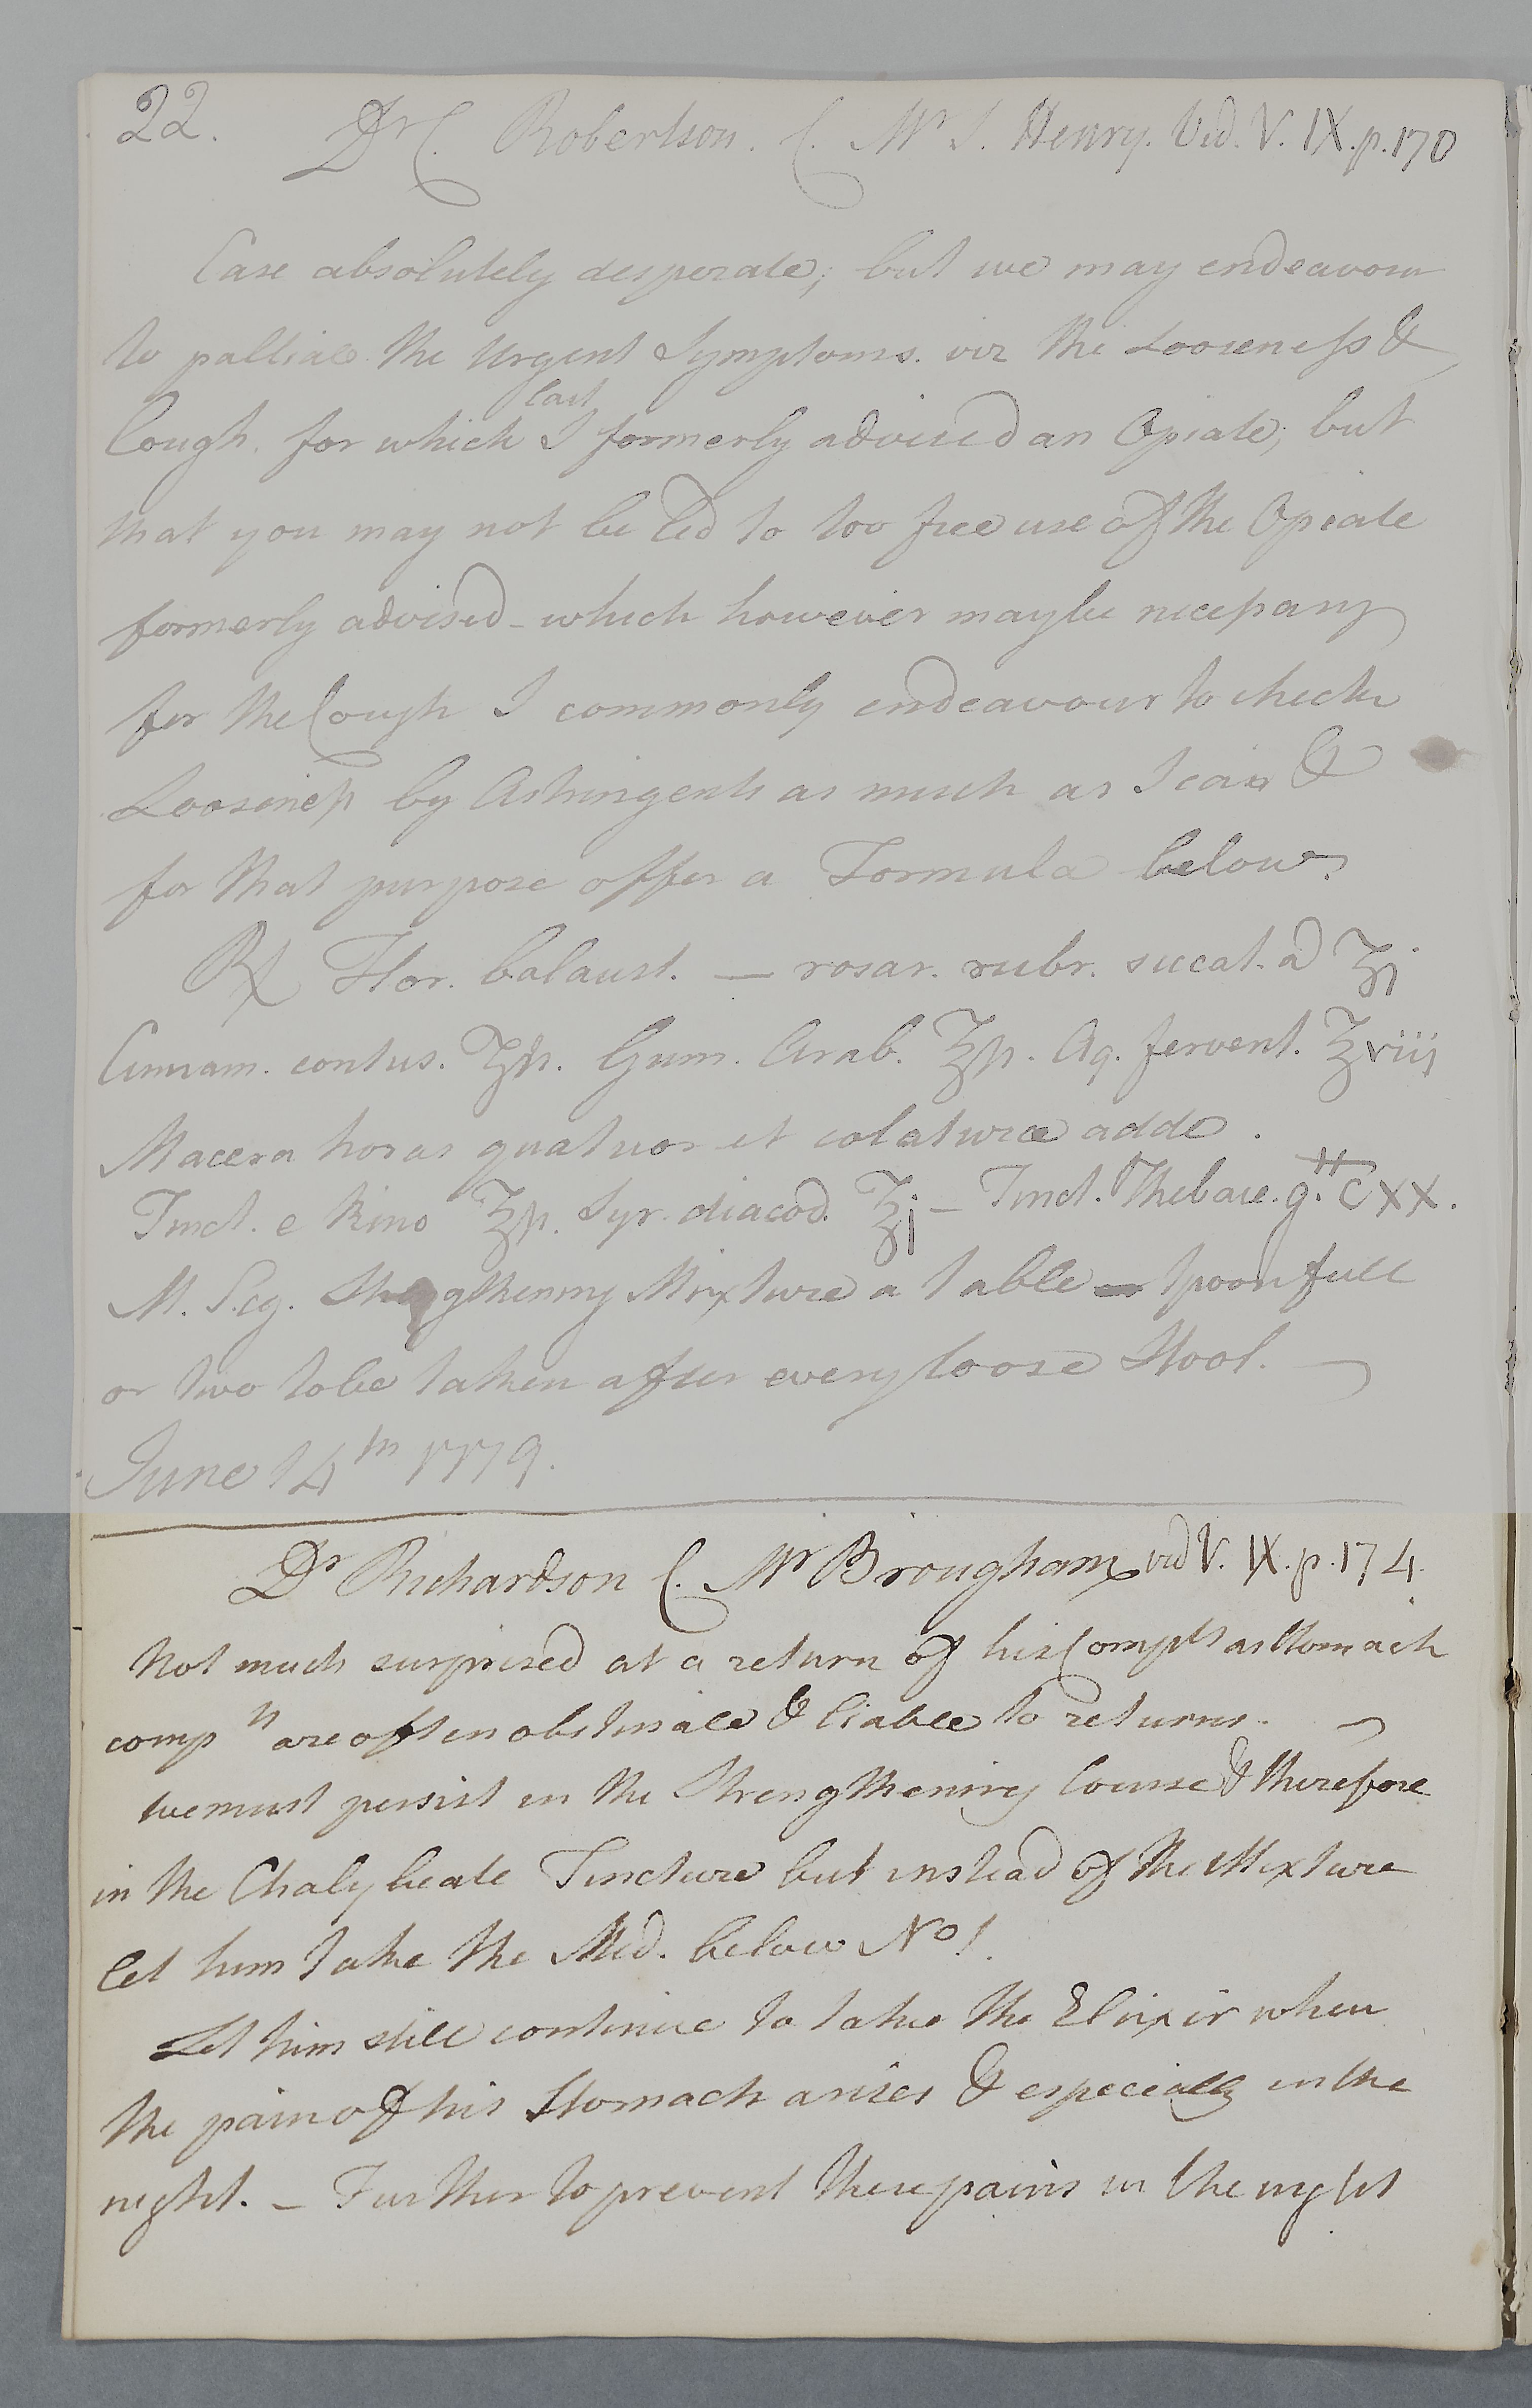 22.
Dr C. Robertson. C. Mr J. Henry. Vid. V. IX. p. 170
Case absolutely desperate; but we may endeavour
to palliate the Urgent Symptoms. viz the Looseness &
Cough. for which I last formerly advised an Opiate; but
that you may not be led to too free use of the Opiate
formerly advised - which however may be necessary
for the Cough I commonly endeavour to check
Looseness by Astringents as much as I can &
for that purpose offer a Formula below
℞ Flor. balaust. — rosar. rubr. siccat. a ʒj
Cinnam. contus. ʒß. Gum. Arab. ʒß. Aq. fervent. ℥viij
Macera horas quatuor et colaturae adde.
Tinct. e Kino ℥ß. Syr. diacod. ℥j - Tinct. Thebaic. gtt CXX.
M. Sig. Strengthening Mixture a table spoonfull
or two to be taken after every loose Stool.
June 14th 1779.
Dr Richardson C. Mr Brougham vid V. IX. p. 174.
Not much surprised at a return of his Complts as Stomach
compts are often obstinate & liable to returns.
we must persist in the Strengthening Course & therefore
in the Chalybeate Tincture but instead of the Mixture
let him take the Med. below No 1.
Let him still continue to take the Elixir when
the pain of his Stomach arises & especially in the
night. - Further to prevent these pains in the night